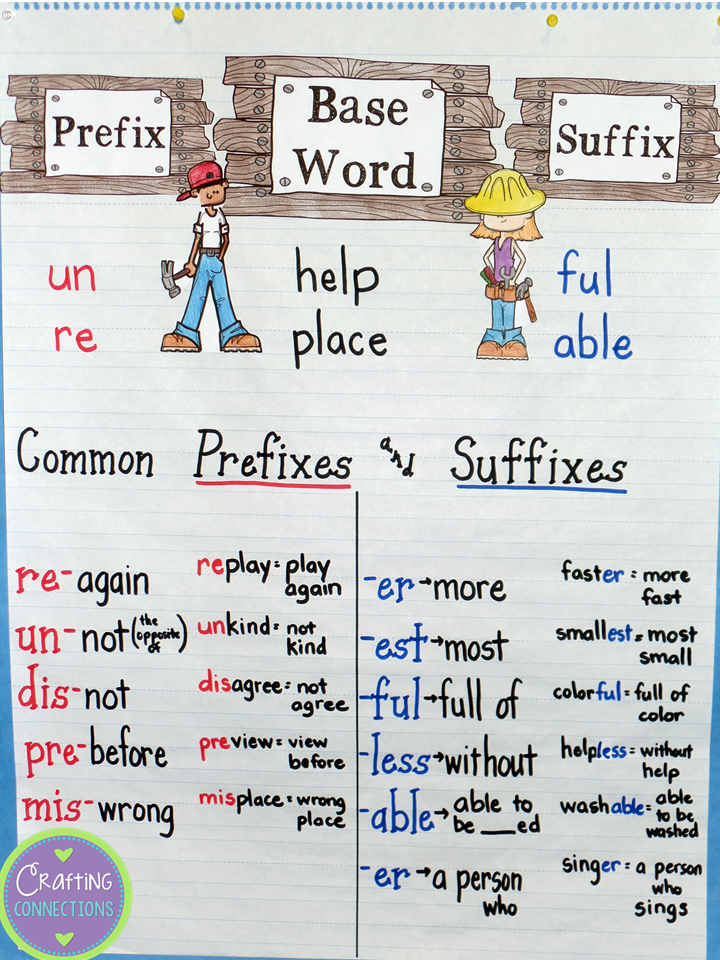 Prefix
Base
Word
Suffix
un
help
ful
re
place
able
Common Prefixes and Suffixes
re- again
replay = play
again
un- not (the
opposite
of)
unkind = not
kind
dis- not
disagree = not
agree
pre- before
preview = view
before
mis- wrong
misplace = wrong
place
-er → more
faster = more
fast
-est → most
smallest = most
small
-ful → full of
colorful = full of
color
-less → without
helpless = without
help
-able → able to
be ___ed
washable = able
to be
washed
-er → a person
who
singer = a person
who
sings
Crafting
CONNECTIONS